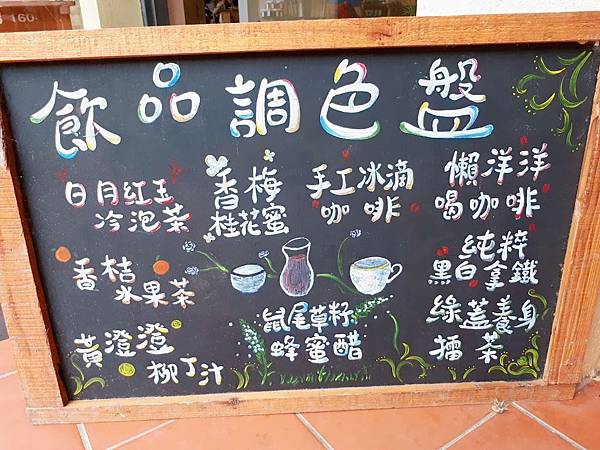 飲品調色盤
日月紅玉
冷泡茶
香梅
桂花蜜
手工冰滴
咖啡
懶洋洋
喝咖啡
香桔
水果茶
純粹
黑白拿鐵
黃澄澄
柳丁汁
鼠尾草籽
蜂蜜醋
綠蓋養身
擂茶
160